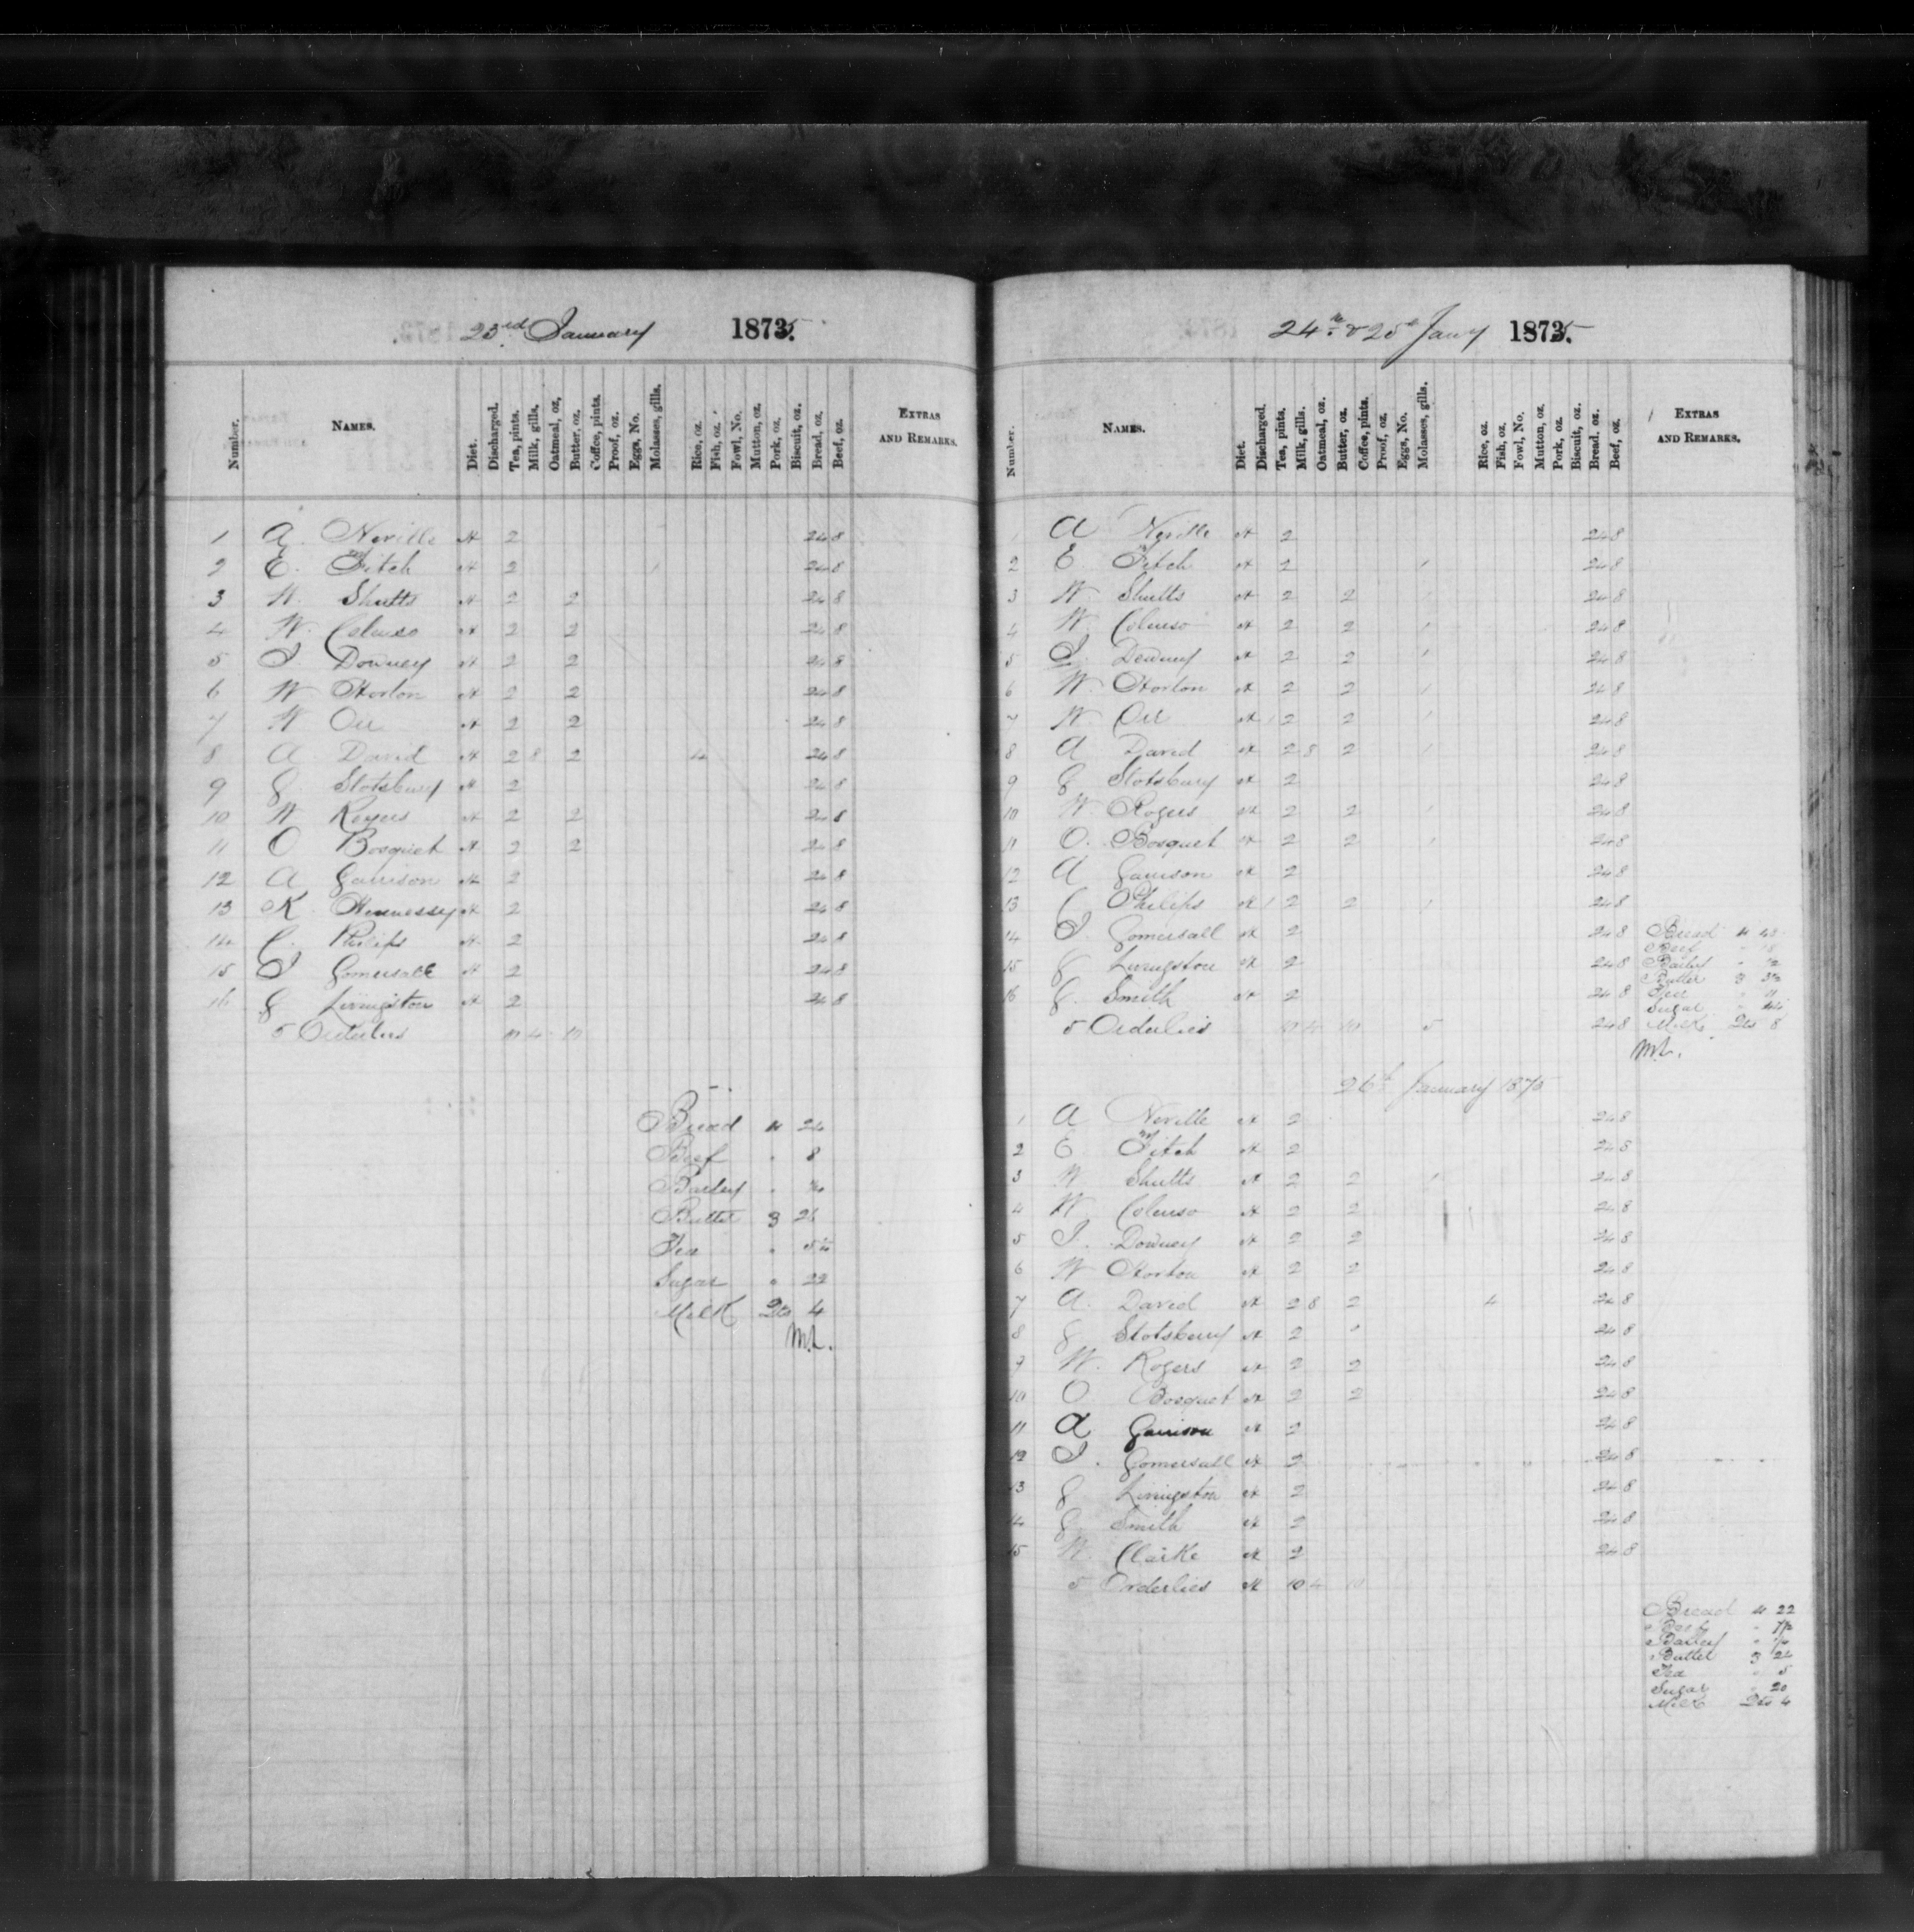 23rd January 1875.
Number. NAMES. Diet. Discharged. Tea, pints. Milk, gills. Oatmeal, oz. Butter, oz. Coffee, pints. Proof, oz. Eggs, No. Molasses, gills. Rice, oz. Fish, oz. Fowl, No. Mutton, oz. Pork, oz. Biscuit, oz. Bread, oz. Beef, oz. EXTRAS AND REMARKS.
1 A. Neville H 2 24 8
2 E. Fitch H 2 24 8
3 W. Shutts H 2 2 24 8
4 W. Coluso H 2 2 24 8
5 J Downey H 2 2 24 8
6 W Horton H 2 2 24 8
7 W Orr H 2 2 24 8
8 A David H 2 8 2 4 24 8
9 G. Stotsbury H 2 24 8
10 W Rogers H 2 2 24 8
11 O Bosquet H 2 2 24 8
12 A Garrison H 2 24 8
13 K. Hennessey H 2 24 8
14 C. Philips H 2 24 8
15 J Gomersall H 2 24 8
16 G Livingston H 2 24 8
5 Orderlies 10 4 10
Bread 24
Beef 8
Barley
Butter 3 26
Tea
Sugar 22
Milk 4
24th & 25th Jany 1875.
Number. NAMES. Diet. Discharged. Tea, pints. Milk, gills. Oatmeal, oz. Butter, oz. Coffee, pints. Proof, oz. Eggs, No. Molasses, gills. Rice, oz Fish, oz Fowl, No. Mutton, oz Pork, oz. Biscuit, oz. Bread. oz. Beef, oz. EXTRAS AND REMARKS.
1 A Neville H 2 24 8
2 E Fitch H 2 1 24 8
3 W Shutts H 2 2 1 24 8
4 W. Coluso H 2 2 1 24 8
5 J. Downey H 2 2 1 24 8
6 W. Horton H 2 2 1 24 8
7 W. Orr H 2 2 1 24 8
8 A David H 2 8 2 1 24 8
9 G Stotsbury H 2 24 8
10 W. Rogers H 2 2 1 24 8
11 O. Bosquet H 2 2 1 24 8
12 A Garrison H 2 24 8
13 C Philips H 2 2 1 24 8
14 J. Gomersall H 2 24 8
15 G Livingston H 2 24 8
16 G. Smith H 2 24 8
5 Orderlies 10 4 10 5 24 8
Bread
Beef
Barley
Butter
Tea 11
Sugar
Milk 8
26th January 1875
1 A Neville H 2 24 8
2 E Fitch H 2 24 8
3 W Shutts H 2 2 24 8
4 W Coluso H 2 2 24 8
5 J. Downey H 2 2 24 8
6 W Horton H 2 2 24 8
7 A. David H 2 8 2 4 24 8
8 G Stotsbury H 2 24 8
9 W. Rogers H 2 2 24 8
10 O Bosquet H 2 2 24 8
11 A Garrison H 2 24 8
12 J. Gomersall H 2 24 8
13 G Livingston H 2 24 8
14 G Smith H 2 24 8
15 W. Clarke H 2 24 8
5 Orderlies H 10 4 10
Bread 22
Beef
Barley
Butter 3 24
Tea 5
Sugar 20
Milk 4